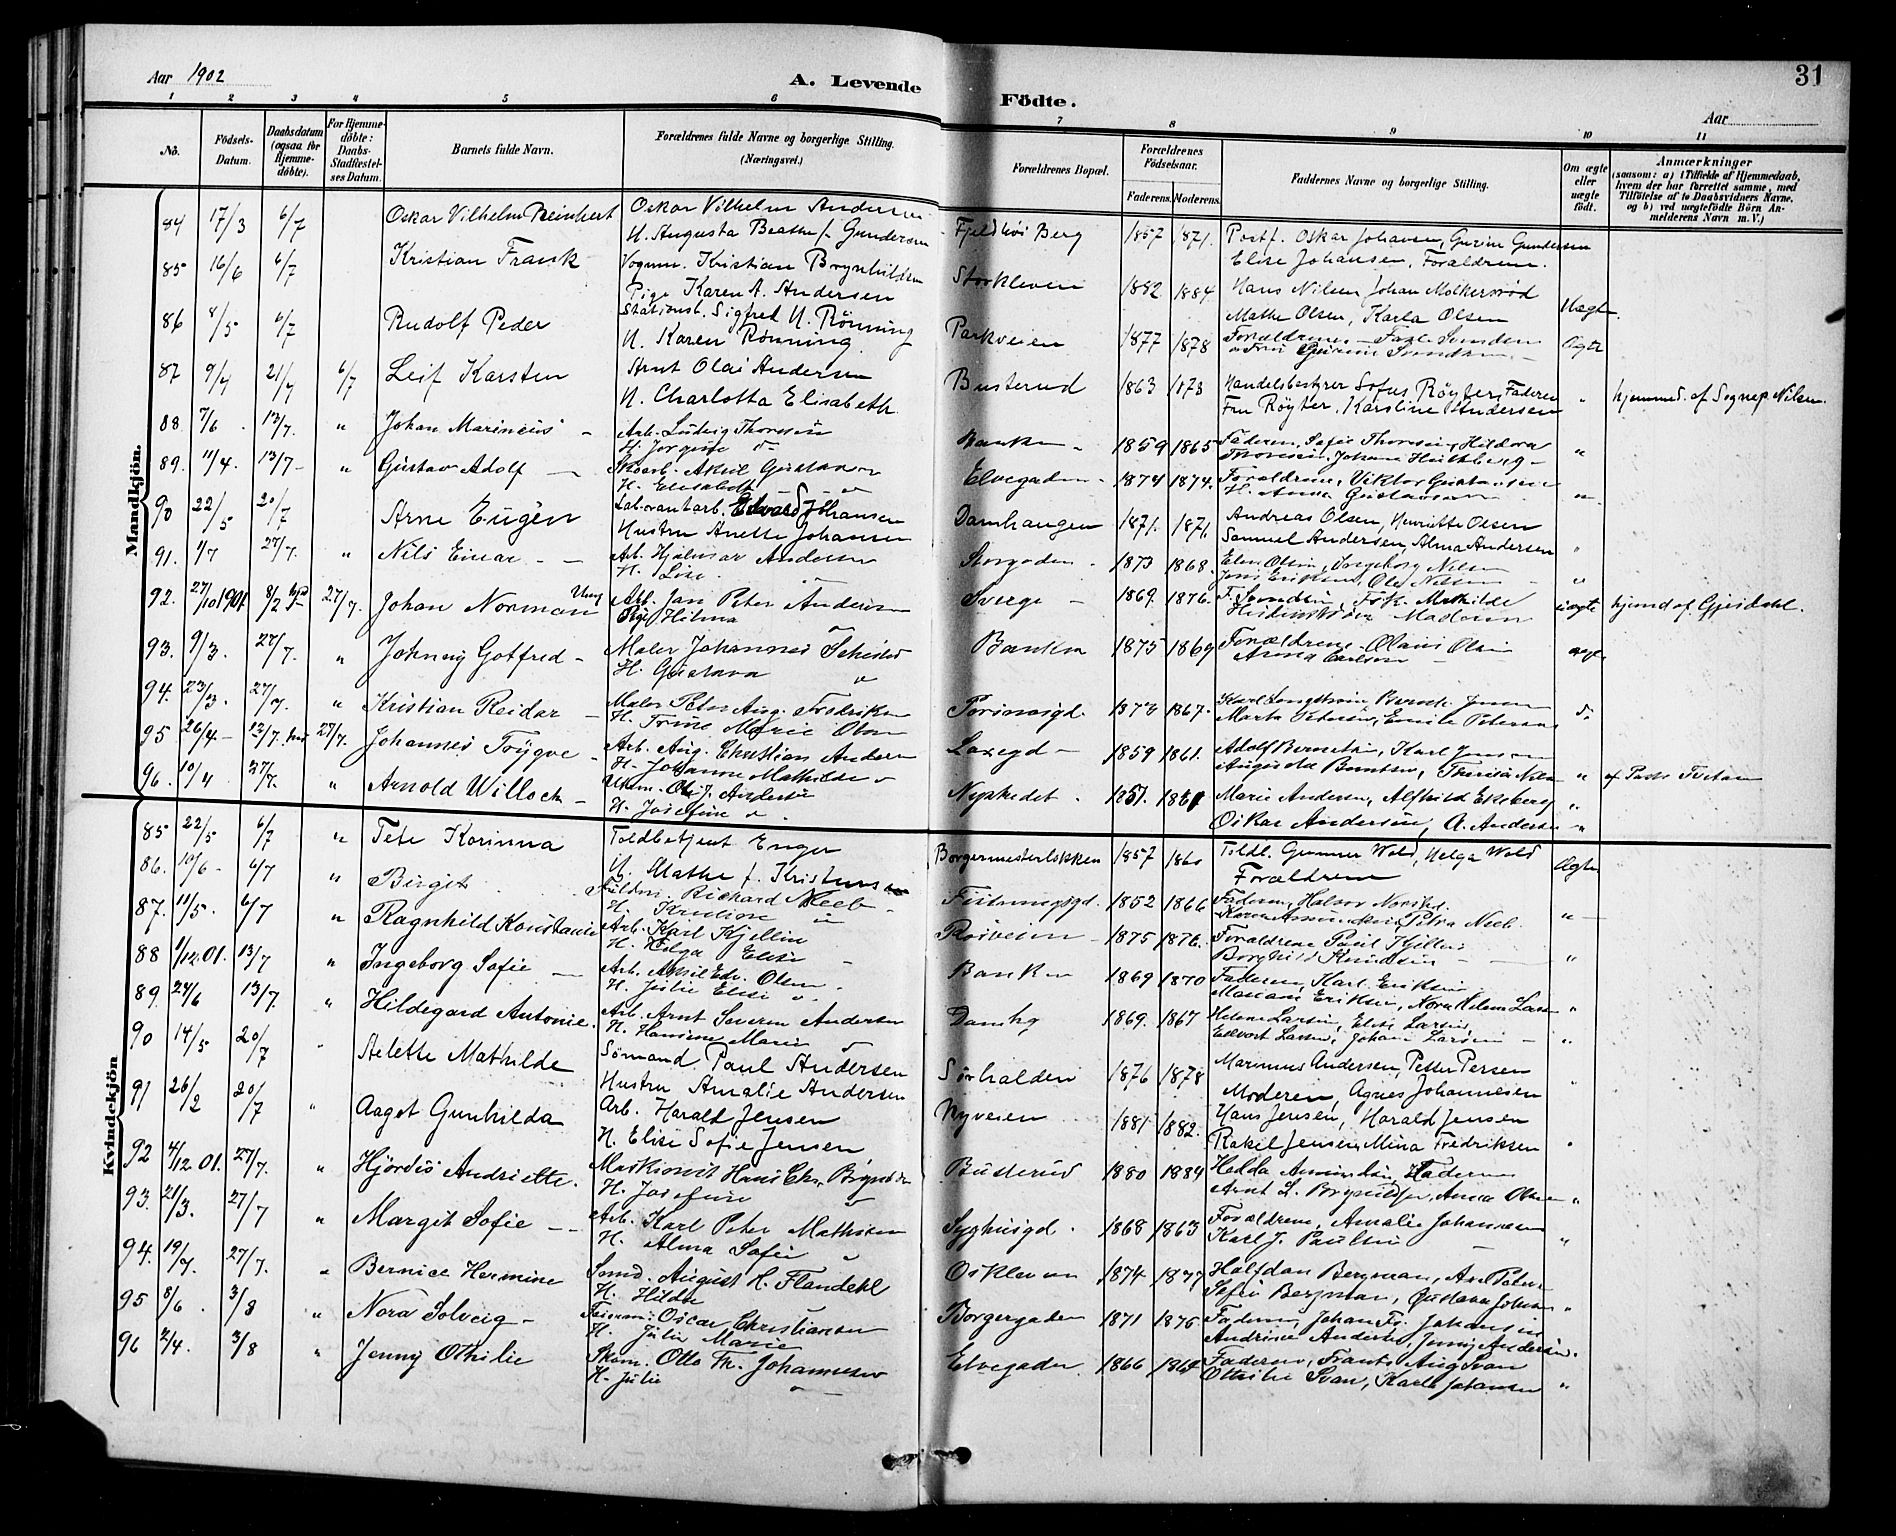 Aar 1902
A. Levende Födte.
Aar
31
1 2 3 4 5 6 7 8 9 10 11
No.
Födsels-Datum.
Daabsdatum (ogsaa for Hjemme-döbte).
For Hjemme-döbte: Daabs-Stadfæstel-ses Datum.
Barnets fulde Navn.
Forældrenes fulde Navne og borgerlige Stilling. (Næringsvei.)
Forældrenes Bopæl.
Forældrenes Födselsaar.
Faderens. Moderens.
Faddernes Navne og borgerlige Stilling.
Om ægte eller uægte födt.
Anmærkninger
(saasom: a) i Tilfælde af Hjemmedaab, hvem der har forrettet samme, med Tilföielse af to Daabsvidners Navne, og b) ved uægtefödte Börn An-melderens Navn m. V.)
Mandkjön.
84 17/3 6/7 Oskar Vilhelm Reinhert Oskar Vilhelm Andersen Fjeldhöi Berg 1857 1871. Postf. Oskar Johansen, Gurine Gundersen
H. Augusta Beathe f. Gundersen Elise Johansen, Forældrene.
85 16/6 6/7 Kristian Frank Vognm. Kristian Brynhildsen Storkleven 1882 1884 Hans Nilsen Johan Molkersröd Uægte.
Pige Karen A. Andersen Mathe Olsen, Karla Olsen
86 8/5 6/7 Rudolf Peder Stationsb. Sigfred N. Rönning Parkveien 1877 1878 Forældrene Ægte
H. Karen Rönning
87 9/4 21/4 6/7 Leif Karsten Arnt Olai Andersen Busterud 1863 1873 Handelsbestyrer Sofus Röyter, Faderen " hjemmed. af Sognep. Nilsen.
H. Charlotta Elisabeth Fru Röyter, Karoline Andersen
88 7/6 13/7. " Johan Marineus Arb. Ludvig Thoresen Banken 1859 1865 Faderen, Sofie Thoresen, Hildora "
H. Jorgine
89. 11/4. 13/7 " Gustav Adolf Skoarb. Aksel Gustavsen Elvegaden 1874 1874. Forældrene, Viktor Gustavsen
H. Elisabeth H. Anna Gustavsen
90 22/5 20/7 Arne Eugén Laborantarb. Edvard Johansen Damhaugen 1871. 1871. Andreas Olsen, Henriette Olsen
Hustru Anette Johansen Samuel Andersen, Alma Andersen "
91. 1/7 27/7. " Nils Einar Arb. Hjalmar Andersen Storgaden 1873 1868. Elen Olsen, Ingeborg Nilsen
H. Lise Jens Eriksen, Ole Nilsen "
92. 27/10 1901 8/2 27/7. Johan Norman Arb. Jan Peter Andersen Sverge 1869. 1876. F. Svendsen, Frk. Mathilde uægte hjemd af Gjesdahl.
Pige Hilma Moderen
93. 9/3. 27/7. " Johnny Gotfred Maler Johannes Banken 1875 1869 Forældrene Olaus Olsen ægte
H. Gustava Anna Carlsen
94. 23/3. 27/7. " Kristian Reidar Maler Peter Aug. Fredriksen 1867.
H. Trine Marie Olsen Marta Petersen, Emile Petersen
95 26/4 12/7. 27/7. Johannes Trygve Arb. Aug. Christian Andersen Laxegd 1859 1861. Adolf Berntsen, Karl Jensen
H. Johanne Mathilde Augusta Berntsen, "
96. 10/4 27/7. " Arnold Willoch Ole J. Andersen 1851. 1861 Marie Andersen, Alfhild Ekeberg "
H. Josefine Oskar Andersen, A. Andersen "
Kvindekjön
85 22/5 6/7 " Tete Korinna Toldbetjent Enger Borgermesterlökken 1857 1860 Toldl. Gunnar Wold, Helga Wold Ægte
H. Mathe f. Kristensen Forældrene
86. 10/6 6/7 " Birgit Richard Neeb 1852 1866 Faderen, Halvor
H. Kristine Petra Neeb "
87. 11/5. 6/7 " Ragnhild Konstanse Arb. Karl Kjellin Rösveien 1875 1876. Forældrene
H. Helga Elise Borghild Knudsen "
88 1/12.01. 13/7 " Ingeborg Sofie Arb. Aksel Edv. Olsen Banken 1869 1870 Faderen, Karl Eriksen
H. Julie Elise Mariane Eriksen, "
89. 24/6 13/7. " Hildegard Antonie. Arb. Arnt Severin Andersen Damhg 1869. 1867 Helene Larsen, Elise Larsen,
H. Hansine Marie Edvart Larsen, Johan Larsen "
90 14/5 20/7 Aelette Mathilde Sömand Paul Andersen Sörhalden 1876 1878 Marinus Andersen, Petter Persen
Hustru Amalie Andersen Moderen, Agnes Johannesen "
91 26/2 20/7 " Aagot Gunhilda Arb. Harald Jensen Nyveien 1881 1882. Hans Jensen, Harald Jensen
H. Elise Sofie Jensen Rakel Jensen, Mina Fredriksen "
92 4/12.01. 27/7. " Hjördis Andriette. Maskionist Hans Chr. Busterud 1880 1884 Hedda Faderen
H. Josefine Arnt L. Anna Olsen "
93. 21/3. 27/7 " Margit Sofie Arb. Karl Peter Mathisen Syghusgd. 1868 1863 Forældrene, Amalie Johannesen
H. Alma Sofie Karl J. Paulsen "
94. 19/4. 27/7. " Bernice Hermine Smed. August H. Flandehl Oskleven 1874 1877 Halfdan Bergman,
H. Hilda Sofie Bergman, Gustava Johansen "
95 8/6. 3/8 " Nora Solveig Oscar Christiansen Borgergaden 1871 1876 Faderen, Johan Fr. Johansen
H. Julie Marie Andrine Andersen, Jenny Andersen. "
96 2/4. 3/8 " Jenny Othilie Skom. Otto Th. Johannesen Elvegaden 1866 1864 Faderen, Frants Aug. Svan
H. Julie Ottilie Svan, Karl Johansen "